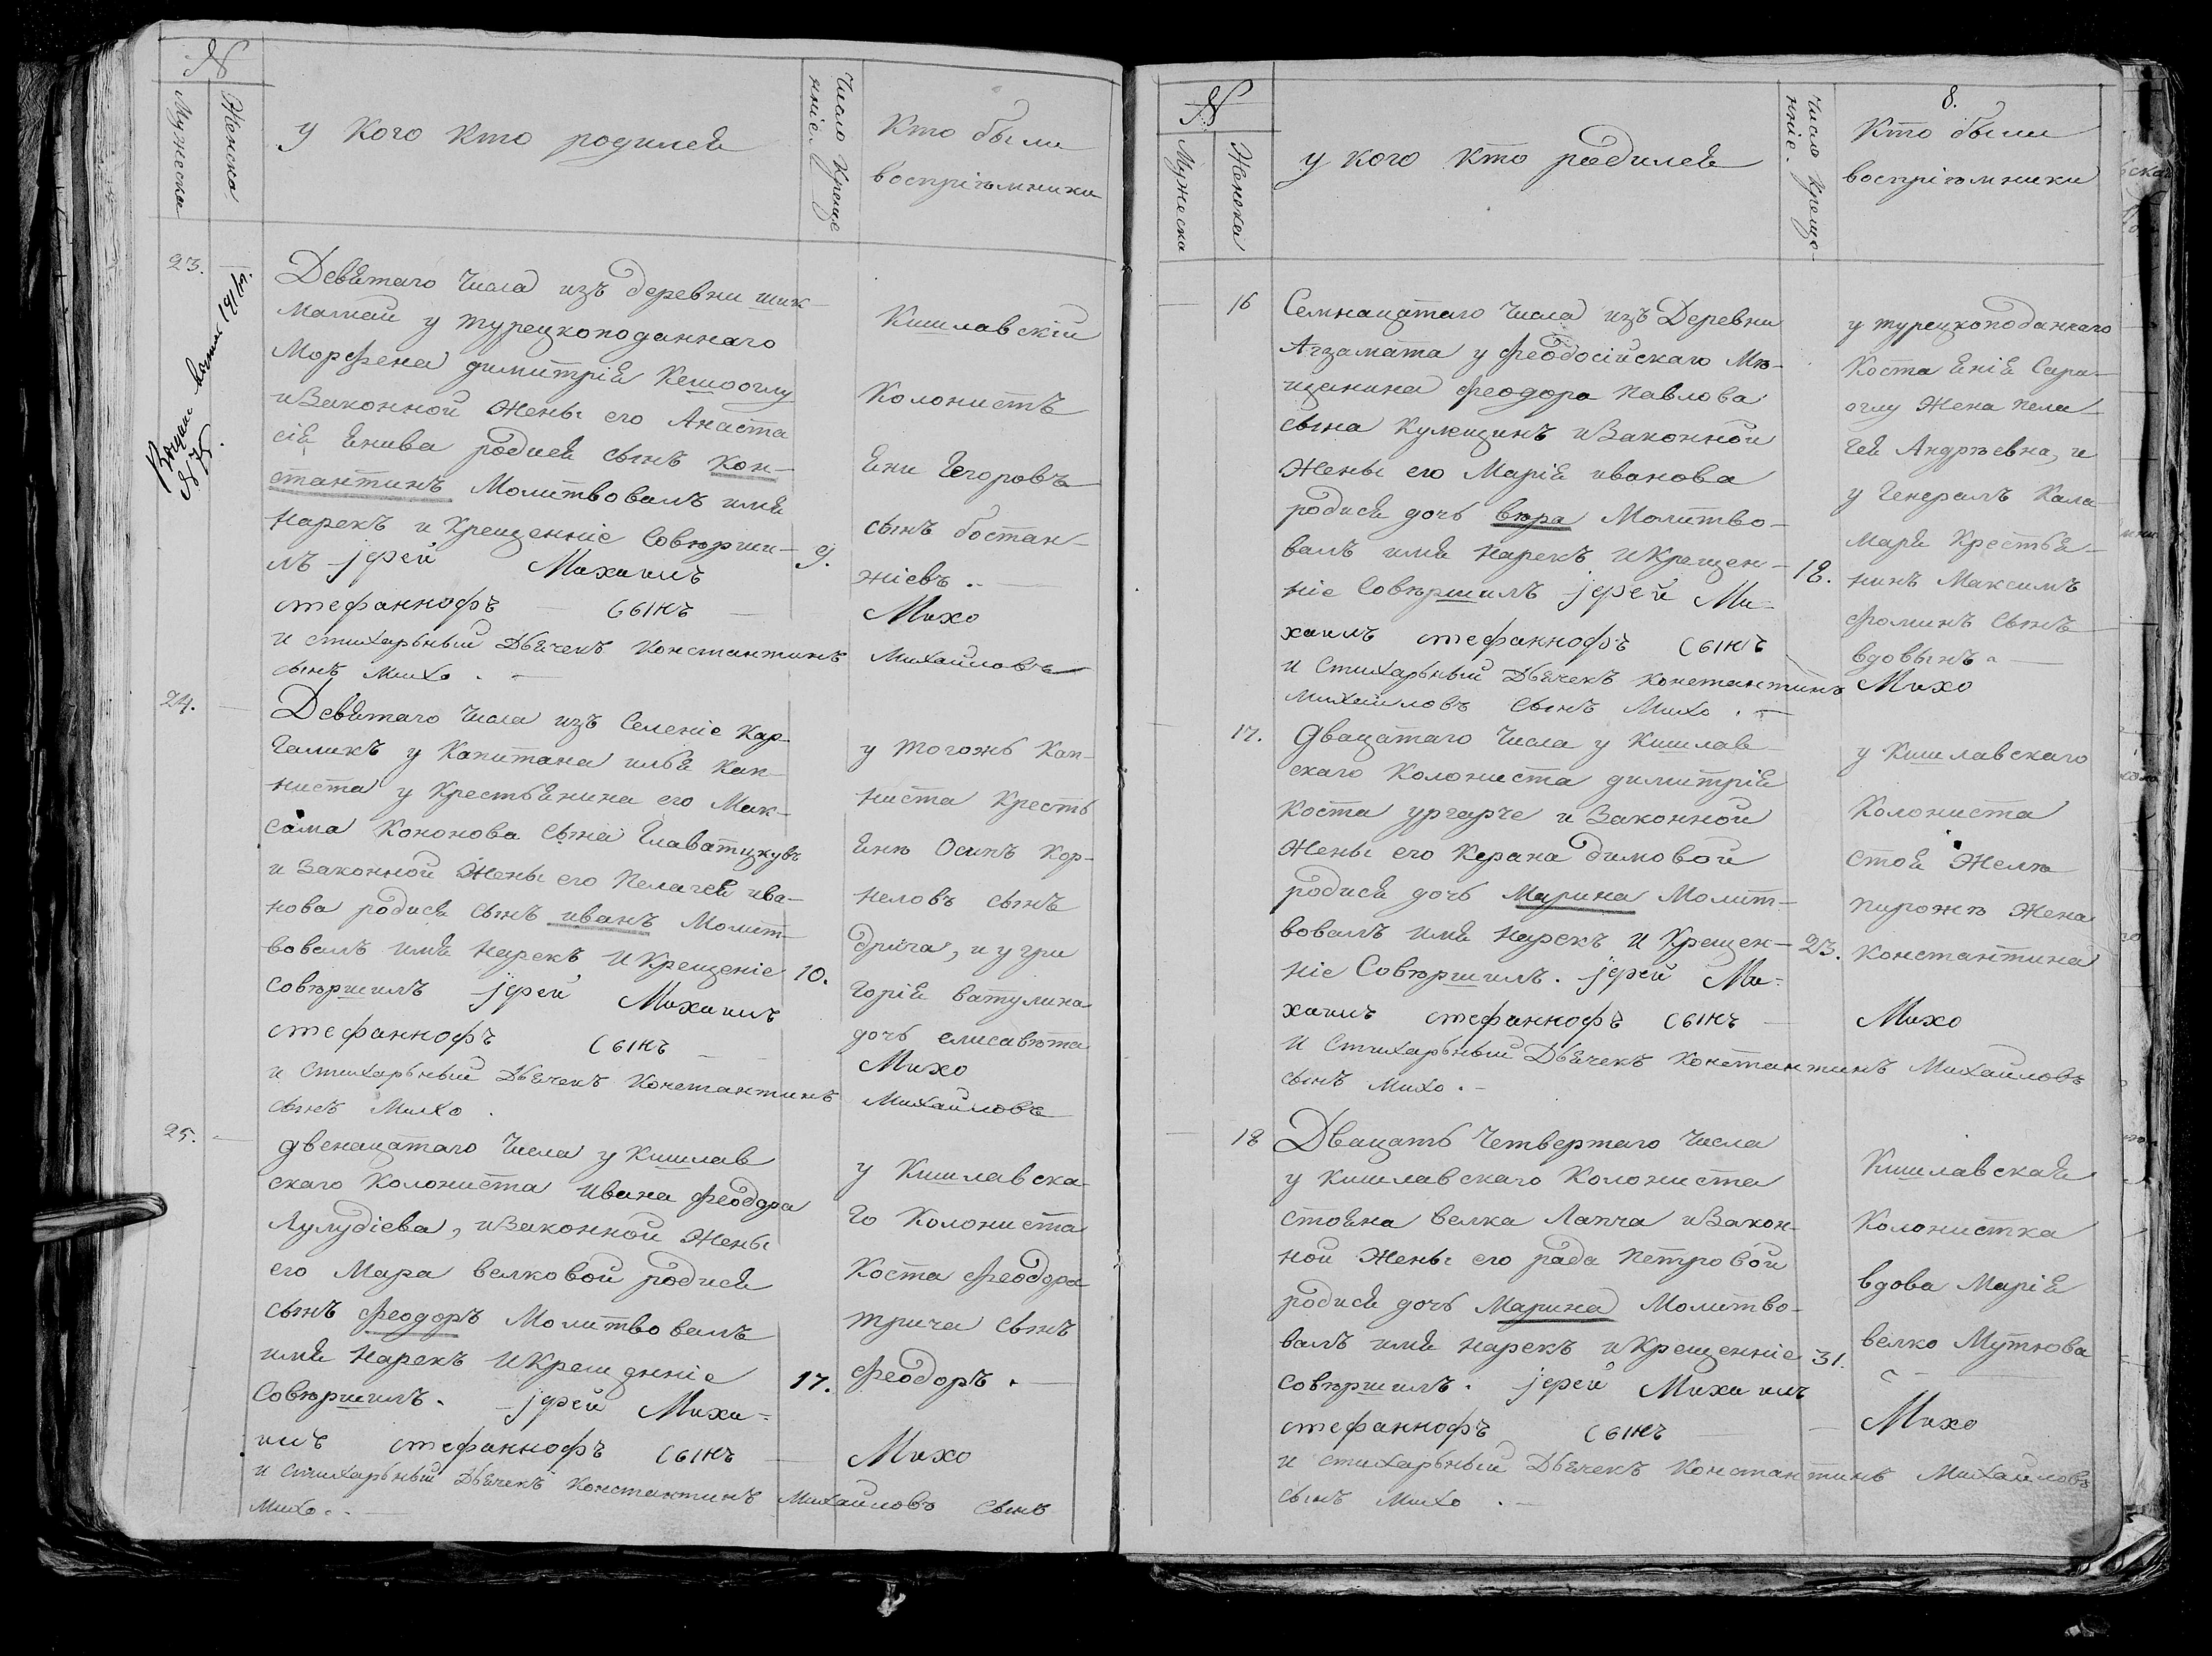 №
Мужеска
Женска
у Кого Кто родилсѧ
Число Креще
нніе.
Кто были
воспріѣмники
23.
Девѧтаго Числа изъ деревни шик
Мамай у турецкоподаннаго
Морфена димитріѧ Кешооглу
и Законной Жены его Анаста
сіѧ Енива родисѧ сынъ Кон-
стантинъ Молитвовалъ имѧ
нарекъ и Крещенніе Совѣрши-
лъ іерей Михаилъ
стефанноффъ сынъ
и стихарьный Дьѧчекъ Константинъ Михайловъ
сынъ Михо.
9.
Кишлавскій
Колонистъ
Ени Егоровъ
сынъ бостан-
жіевъ.
Михо
24.
Девѧтаго Числа изъ Селеніе Кар
Галикъ у Капитана ильѧ Кап-
ниста у Крестьѧнина его Мак-
сама Кононова сына
и Законной Жены его Пелагеѧ ива-
нова родисѧ сынъ иванъ Молит-
вовалъ имѧ нарекъ и Крещеніе
совѣршилъ іерей Михаилъ
стефанноффъ сынъ
и стихарьный Дьѧчекъ Константинъ Михайловъ
сынъ Михо.
10.
у тогожъ Кап-
ниста Кресть
ѧнѣ Осипъ Кор-
неловъ сынъ
дрига, и у гри
горіѧ ватулина
дочь елисавѣта
Михо
25.
двенацатаго Числа у Кишлав
скаго Колониста ивана феодора
Лулудіева, и Законной Жены
его Мара велковой родисѧ
сынъ феодоръ Молитвовалъ
имѧ нарекъ и Крещенніе
Совѣршилъ. іерей Миха-
илъ стефанноффъ сынъ
и стихарьный Дьѧчекъ Константинъ Михайловъ сынъ
Михо.
17.
у Кишлавска-
го Колониста
Коста феодора
трича сынъ
феодоръ.
Михо
№
Мужеска
Женска
у кого кто родилсѧ
Число Креще-
нніе.
8.
Кто были
воспріѣмники
16
Семнацатаго Числа изъ Деревни
Агзамата у феодосійскаго Мѣ-
щанина феодора Павлова
сына Кулищинъ и Законной
Жены его Маріѧ иванова
родисѧ дочь вѣра Молитво-
валъ имѧ нарекъ и Крещен-
ніе Совѣршилъ іерей Ми-
хаилъ стефанноффъ сынъ
и Стихарьный Дьѧчекъ Константинъ
Михайловъ сынъ Михо.
18.
у турецкоподаннаго
Коста Еніѧ Сара-
оглу Жена пела-
геѧ Андрѣевна, и
у Генералъ Кала-
мараѧ Крестьѧ-
нинъ Максимъ
фоминъ сынъ
вдовынъ.
Михо
17.
Двацатаго Числа у Кишлав
скаго Колониста димитріѧ
Коста ургарче и Законной
Жены его Керана димовой
родисѧ дочь Марина Молит-
вовалъ имѧ нарекъ и Крещен-
ніе Совѣршилъ. іерей Ми-
хаилъ стефанноффъ сынъ
и Стихарьный Дьѧчекъ Константинъ Михайловъ
сынъ Михо.
23.
у Кишлавскаго
Колониста
стоѧ Желѣ
пирожѣ Жена
Константина
Михо
18
Двацать Четвертаго Числа
у кишлавскаго Колониста
стоѧна велка Лапча и Закон-
ной Жены его рада Петровой
родисѧ дочь Марина Молитво-
валъ имѧ нарекъ и Крещенніе
совѣршилъ. іерей Михаилъ
стефанноффъ сынъ
и стихарьный Дьѧчекъ Константинъ Михайловъ
сынъ Михо.
31.
Кишлавскаѧ
Колонистка
вдова Маріѧ
велко Мутюва
Михо